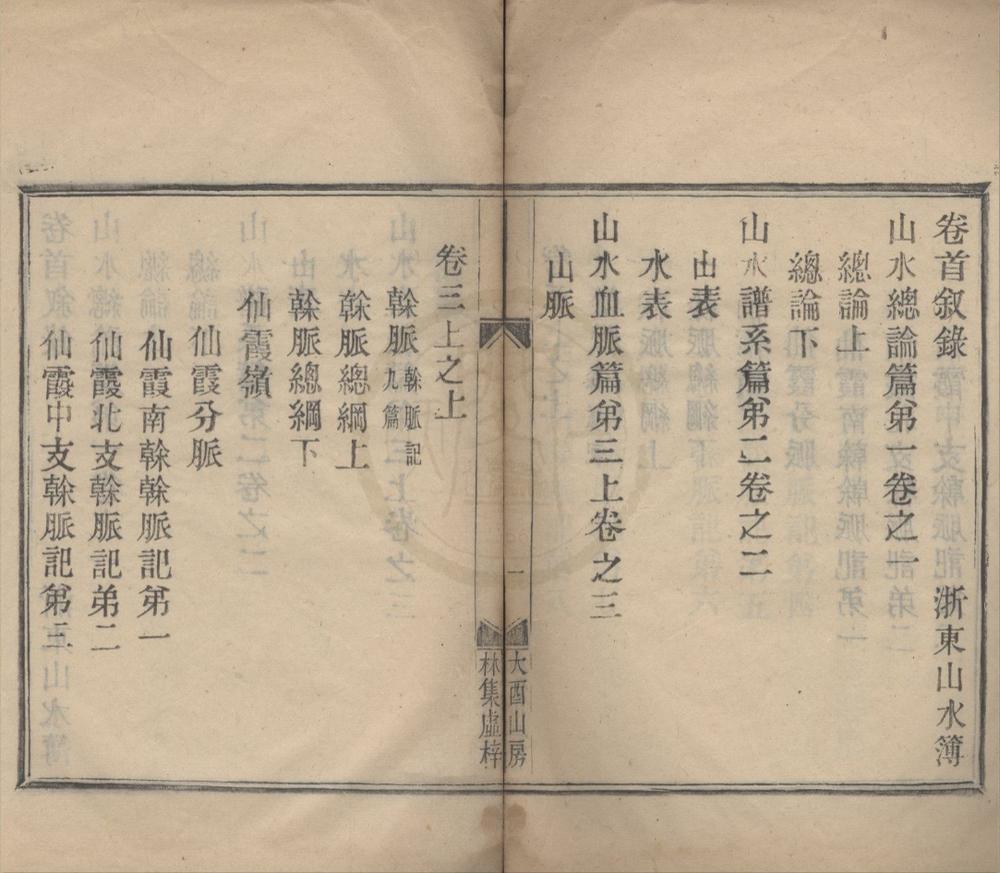 卷首叙錄　浙東山水簿
山水總論篇第一卷之一
總論上
總論下
山水譜系篇第二卷之二
山表
水表
山水血脈篇第三上卷之三
山脈
一
大酉山房
林集虛梓
卷三上之上
榦脈榦脈記九篇
榦脈總綱上
榦脈總綱下
仙霞嶺
仙霞分脈
仙霞南榦榦脈記第一
仙霞北支榦脈記第二
仙霞中支榦脈記第三